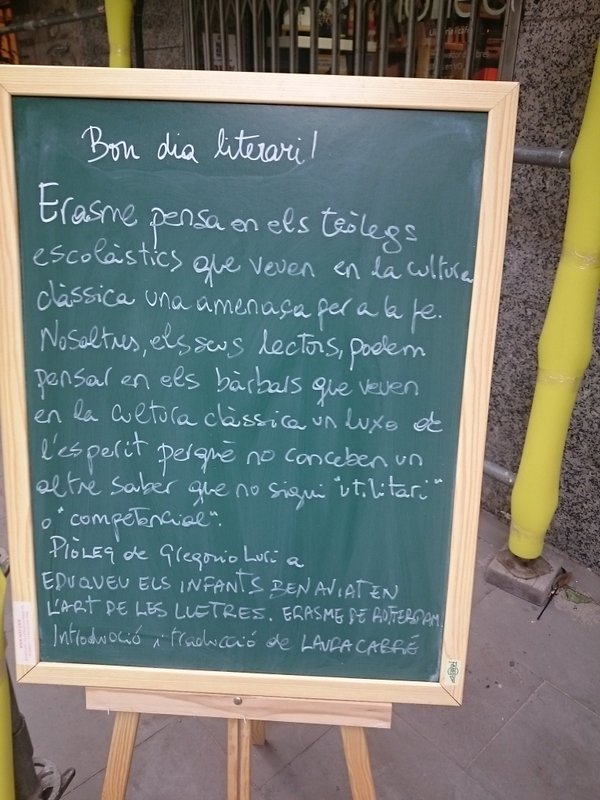 Bon dia literari!
Erasme pensa en els teòlegs
escolàstics que veuen en la cultura
clàssica una amenaça per a la fe.
Nosaltres, els seus lectors, podem
pensar en els bàrbars que veuen
en la cultura clàssica un luxe de
l'esperit perquè no conceben un
altre saber que no sigui "utilitari"
o "competencial".
Pròleg de Gregorio Luri a
EDUQUEU ELS INFANTS BEN AVIAT EN
L'ART DE LES LLETRES. ERASME DE ROTTERDAM.
Introducció i traducció de LAURA CABRÉ